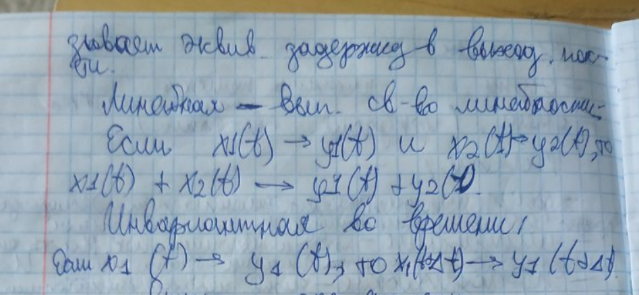 зывает эквив. задержку в выход. пос-
ти.
Линейная – вып. св-во линейности:
Если x1(t) → y1(t) и x2(t) → y2(t), то
x1(t) + x2(t) → y1(t) + y2(t).
Инвариантная во времени:
Если x1 (t) → y1 (t), то x1(t-Δt) → y1 (t-Δt)